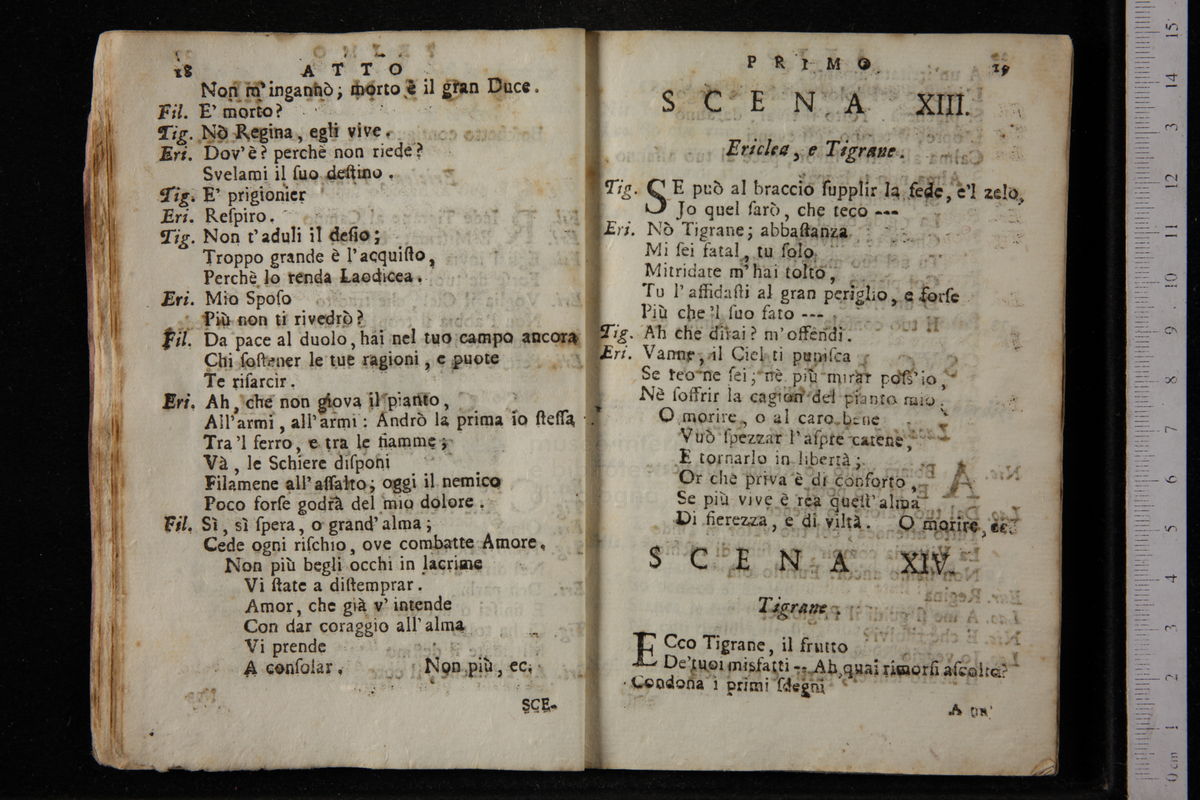 18 ATTO
Non m'ingannò; morto è il gran Duce.
Fil. E' morto?
Tig. Nò Regina, egli vive.
Eri. Dov'è? perchè non riede?
Svelami il ſuo deſtino.
Tig. E' prigionier
Eri. Reſpiro.
Tig. Non t'aduli il deſio;
Troppo grande è l'acquiſto,
Perchè lo renda Laodicea.
Eri. Mio Spoſo
Più non ti rivedrò?
Fil. Da pace al duolo, hai nel tuo campo ancora
Chi ſoſtener le tue ragioni, e puote
Te riſarcir.
Eri. Ah, che non giova il pianto,
All'armi, all'armi: Andrò la prima io ſteſſa
Tra'l ferro, e tra le fiamme;
Và, le Schiere diſponi
Filamene all'aſſalto; oggi il nemico
Poco forſe godrà del mio dolore.
Fil. Sì, sì ſpera, o grand'alma;
Cede ogni riſchio, ove combatte Amore.
Non più begli occhi in lacrime
Vi ſtate a diſtemprar.
Amor, che già v'intende
Con dar coraggio all'alma
Vi prende
A conſolar. Non più, ec.
SCE-
PRIMO 19
SCENA XIII.
Ericlea, e Tigrane.
Tig. SE può al braccio ſupplir la fede, e'l zelo,
Jo quel ſarò, che teco ---
Eri. Nò Tigrane; abbaſtanza
Mi ſei fatal, tu ſolo
Mitridate m'hai tolto,
Tu l'affidaſti al gran periglio, e forſe
Più che'l ſuo fato ---
Tig. Ah che dirai? m'offendi.
Eri. Vanne, il Ciel ti puniſca
Se reo ne ſei; nè più mirar poſs'io,
Nè ſoffrir la cagion del pianto mio.
O morire, o al caro bene
Vuò ſpezzar l'aſpre catene,
E tornarlo in libertà;
Or che priva è di conforto,
Se più vive è rea quell'alma
Di fierezza, e di viltà. O morire, ec.
SCENA XIV.
Tigrane.
ECco Tigrane, il frutto
De'tuoi misfatti -- Ah quai rimorſi aſcolto?
Condona i primi ſdegni
A un'